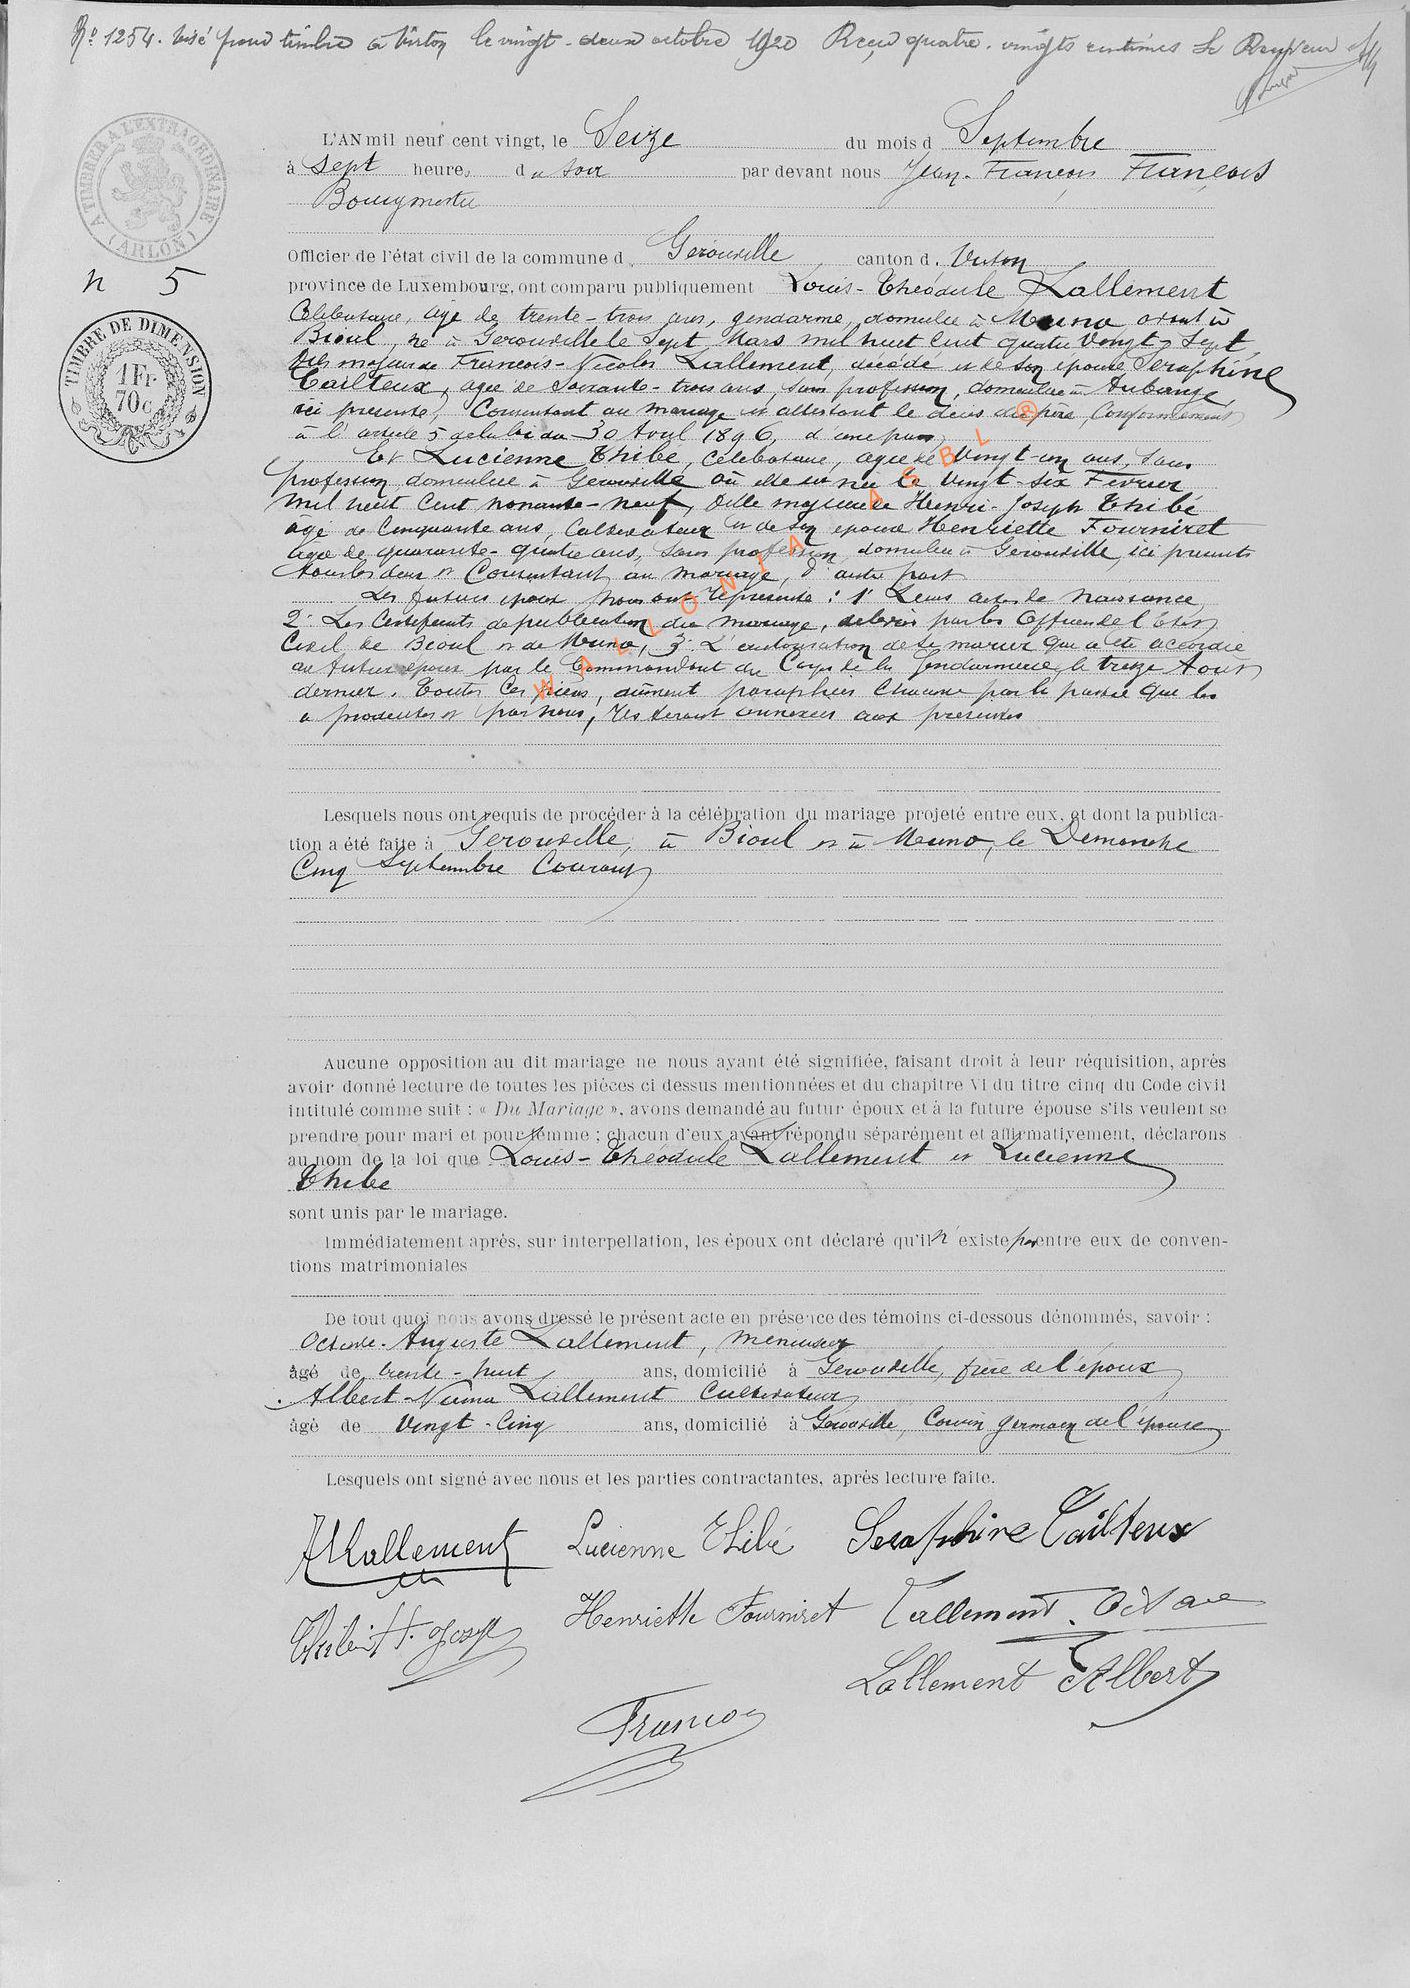 Rº 1254. Visé pour timbre à Virton le vingt-deux octobre 1920 Reçu quatre-vingts centimes Le Receveur
TIMBRER A L'EXTRAORDINAIRE
(ARLON)
n 5
TIMBRE DE DIMENSION
1 Fr
70 c
L'AN mil neuf cent vingt, le Seize du mois d Septembre
à Sept heures du soir par devant nous Jean-François François
Bourgmestre
Officier de l'état civil de la commune d Gérouville canton d. Virton
province de Luxembourg, ont comparu publiquement Louis-Théodule Lallement
Célibataire, âgé de trente-trois ans, gendarme, domicilié à Muno avant à
Bioul, né à Gérouville le Sept Mars mil huit cent quatre vingt-Sept,
fils majeur de François-Nicolas Lallement, décédé et de son épouse Séraphine
Cailteux, âgée de Soixante-trois ans, sans profession, domiciliée à Aubange,
ici présente, Consentant au mariage et attestant le décès du père, Conformément
à l'article 5 de la loi du 30 Avril 1896, d'une part,
Et Lucienne Thibé, célibataire, âgée de Vingt-un ans, sans
profession domiciliée à Gérouville où elle est née le Vingt-Six Février
mil huit Cent nonante-neuf, fille majeure de Henri-Joseph Thibé
âgé de Cinquante ans, Cultivateur et de son épouse Henriette Fourniret
âgée de quarante-quatre ans, sans profession domiciliés à Gérouville, ici présents
tous les deux et Consentant au mariage, d'autre part
Les futurs époux nous ont représenté : 1º Leurs actes de naissance
2º Les Certificats de publication du mariage, délivrés par les Officiers de l'état
Civil de Bioul et de Muno, 3º L'autorisation de se marier qui a été accordée
au futur époux par le Commandant du Corps de la Gendarmerie, le treize Août
dernier. Toutes Ces pièces, dûment paraphées Chacune par la partie qui les
a produites et par nous, resteront annexées aux présentes
WALLONIA ASBL ®
Lesquels nous ont requis de procéder à la célébration du mariage projeté entre eux, et dont la publica-
tion a été faite à Gérouville, à Bioul et à Muno, le Dimanche
Cinq Septembre Courant
Aucune opposition au dit mariage ne nous ayant été signifiée, faisant droit à leur réquisition, après
avoir donné lecture de toutes les pièces ci dessus mentionnées et du chapitre VI du titre cinq du Code civil
intitulé comme suit : « Du Mariage », avons demandé au futur époux et à la future épouse s'ils veulent se
prendre pour mari et pour femme ; chacun d'eux ayant répondu séparément et affirmativement, déclarons
au nom de la loi que Louis-Théodule Lallement et Lucienne
Thibé
sont unis par le mariage.
Immédiatement après, sur interpellation, les époux ont déclaré qu'il n'existe pas entre eux de conven-
tions matrimoniales
De tout quoi nous avons dressé le présent acte en présence des témoins ci-dessous dénommés, savoir :
Octave-Auguste Lallement, menuisier
âgé de trente-huit ans, domicilié à Gérouville, frère de l'époux
Albert-Numa Lallement Cultivateur
âgé de Vingt-Cinq ans, domicilié à Gérouville, Cousin germain de l'épouse
Lesquels ont signé avec nous et les parties contractantes, après lecture faite.
Lallement Lucienne Thibé Séraphine Cailteux
Thibé H. Joseph Henriette Fourniret Lallement Octave
Lallement Albert
François